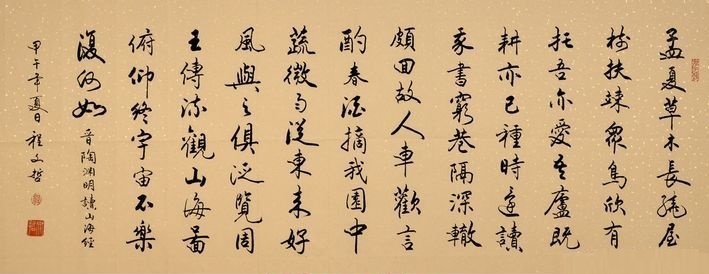 孟夏草木長繞屋
樹扶疎衆鳥欣有
托吾亦愛吾廬既
耕亦已種時還讀
我書窮巷隔深轍
頗回故人車歡言
酌春酒摘我園中
蔬微雨從東來好
風與之俱泛覽周
王傳流觀山海圖
俯仰終宇宙不樂
復何如
晉陶渊明讀山海經
甲午年夏日程文哲